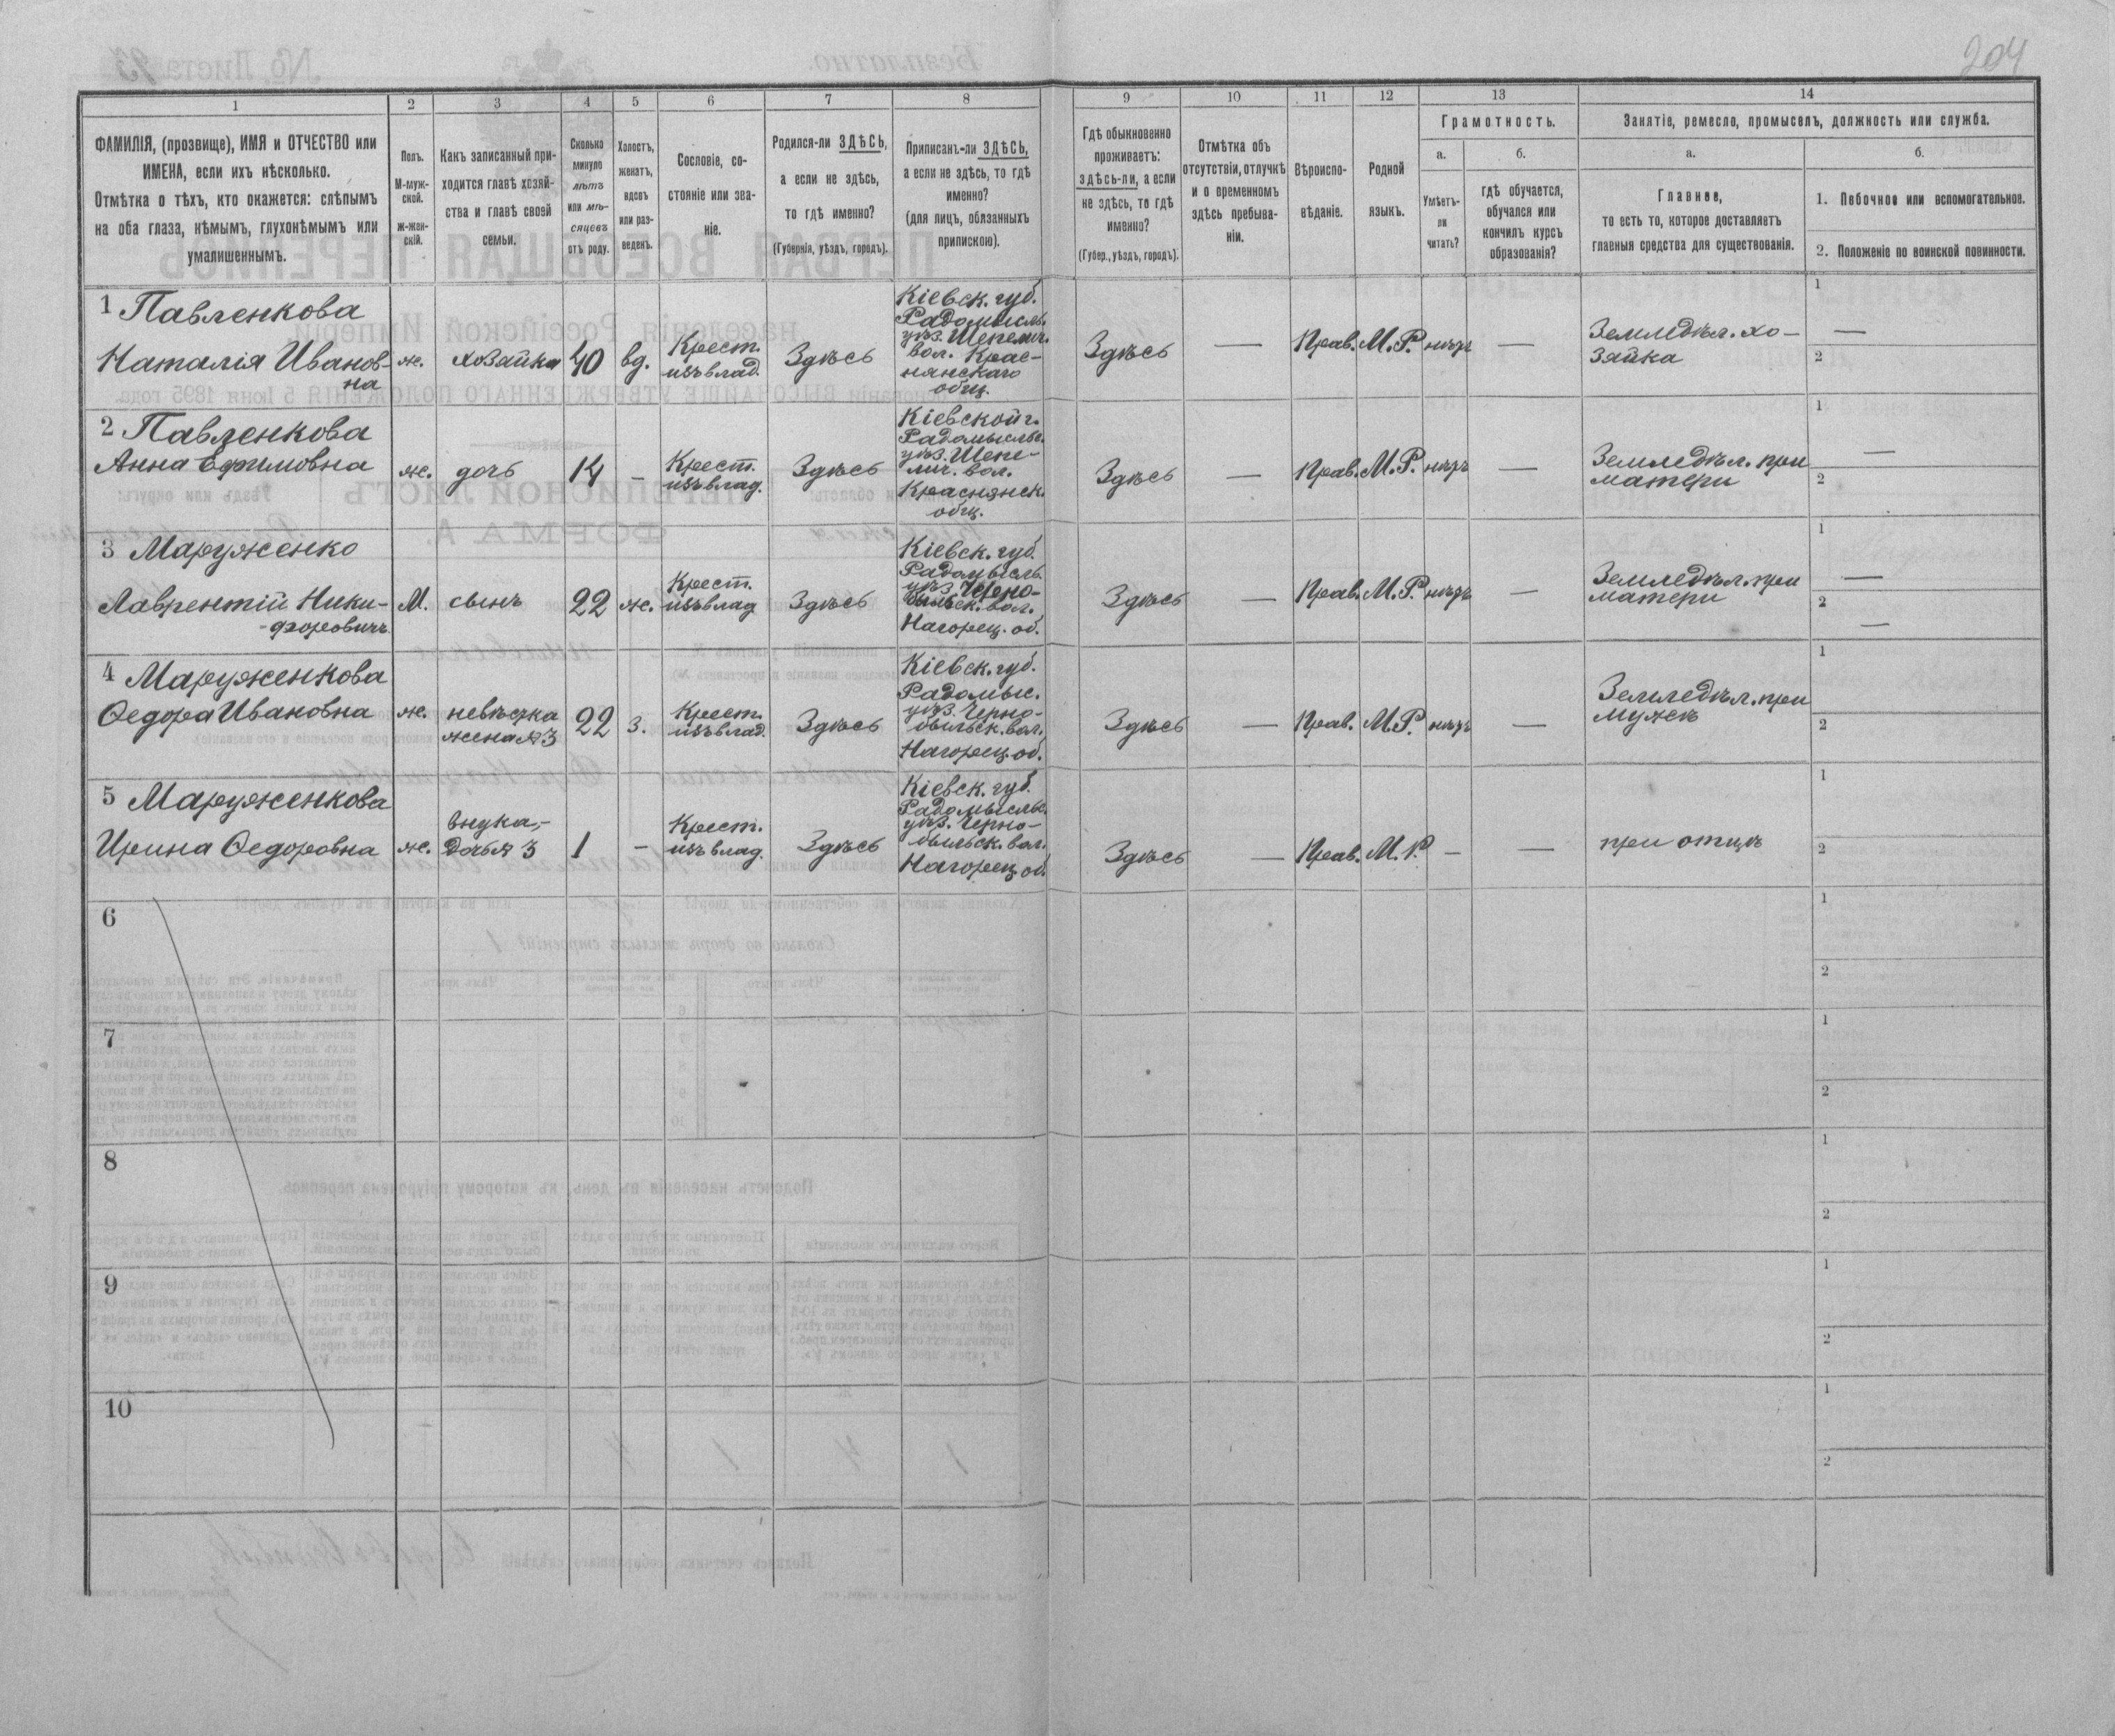 204
1
2
3
4
5
6
7
8
9
10
11
12
13
14
ФАМИЛІЯ, (прозвище), ИМЯ и ОТЧЕСТВО или
ИМЕНА, если ихъ нѣсколько.
Отмѣтка о тѣхъ, кто окажется: слѣпымъ
на оба глаза, нѣмымъ, глухонѣмымъ или
умалишеннымъ.
Полъ.
М-муж-
ской.
ж-жен-
скій.
Какъ записанный при-
ходится главѣ хозяй-
ства и главѣ своей
семьи.
Сколько
минуло
лѣтъ
или мѣ-
сяцевъ
отъ роду.
Холостъ,
женатъ,
вдовъ
или раз-
веденъ.
Сословіе, со-
стояніе или зва-
ніе.
Родился-ли ЗДѢСЬ,
а если не здѣсь,
то гдѣ именно?
(Губернія, уѣздъ, городъ).
Приписанъ-ли ЗДѢСЬ,
а если не здѣсь, то гдѣ
именно?
(для лицъ, обязанныхъ
припискою).
Гдѣ обыкновенно
проживаетъ:
здѣсь-ли, а если
не здѣсь, то гдѣ
именно?
(Губер., уѣздъ, городъ).
Отмѣтка объ
отсутствіи, отлучкѣ
и о временномъ
здѣсь пребыва-
ніи.
Вѣроиспо-
вѣданіе.
Родной
языкъ.
Грамотность.
а.
б.
Умѣетъ-
ли
читать?
гдѣ обучается,
обучался или
кончилъ курсъ
образованія?
Занятіе, ремесло, промыселъ, должность или служба.
а.
б.
Главное,
то есть то, которое доставляетъ
главныя средства для существованія.
1. Побочное или вспомогательное.
2. Положеніе по воинской повинности.
1 Павленкова
Наталія Иванов-
на
ж.
хозайка
40
вд.
Крест.
изъ влад.
Здѣсь
Кіевск. губ.
Радомысль.
уѣз. Шепелич.
вол. Крас-
нянскаго
общ.
Здѣсь
—
Прав.
М. Р.
нѣтъ
—
Земледѣл. хо-
зайка
1
—
2
2 Павленкова
Анна Ефимовна
ж.
дочь
14
-
Крест.
изъ влад.
Здѣсь
Кіевской г.
Радомысльс.
уѣз. Шепе-
лич. вол.
Краснянск.
общ.
Здѣсь
—
Прав.
М. Р.
нѣтъ
—
Земледѣл. при
матери
1
—
2
3 Маруженко
Лаврентій Ники-
-форовичъ
М.
сынъ
22
ж.
Крест.
изъ влад
Здѣсь
Кіевск. губ.
Радомысль.
уѣз. Черно-
быльск. вол.
Нагорец. об.
Здѣсь
—
Прав.
М. Р.
нѣтъ
—
Земледѣл. при
матери
1
—
2
—
4 Маруженкова
Ѳедора Ивановна
ж.
невѣстка
жена № 3
22
з.
Крест.
изъ влад.
Здѣсь
Кіевск. губ.
Радомыс.
уѣз. Черно-
быльск. вол.
Нагорец. об.
Здѣсь
—
Прав.
М. Р.
нѣтъ
—
Земледѣл. при
мужѣ
1
2
5 Маруженкова
Ирина Ѳедоровна
ж.
внука,-
дочь № 3
1
-
Крест.
изъ влад.
Здѣсь
Кіевск. губ.
Радомысльс.
уѣз. Черно-
быльск. вол.
Нагорец. об.
Здѣсь
—
Прав.
М. Р.
-
—
при отцѣ
1
2
6
1
2
7
1
2
8
1
2
9
1
2
10
1
2